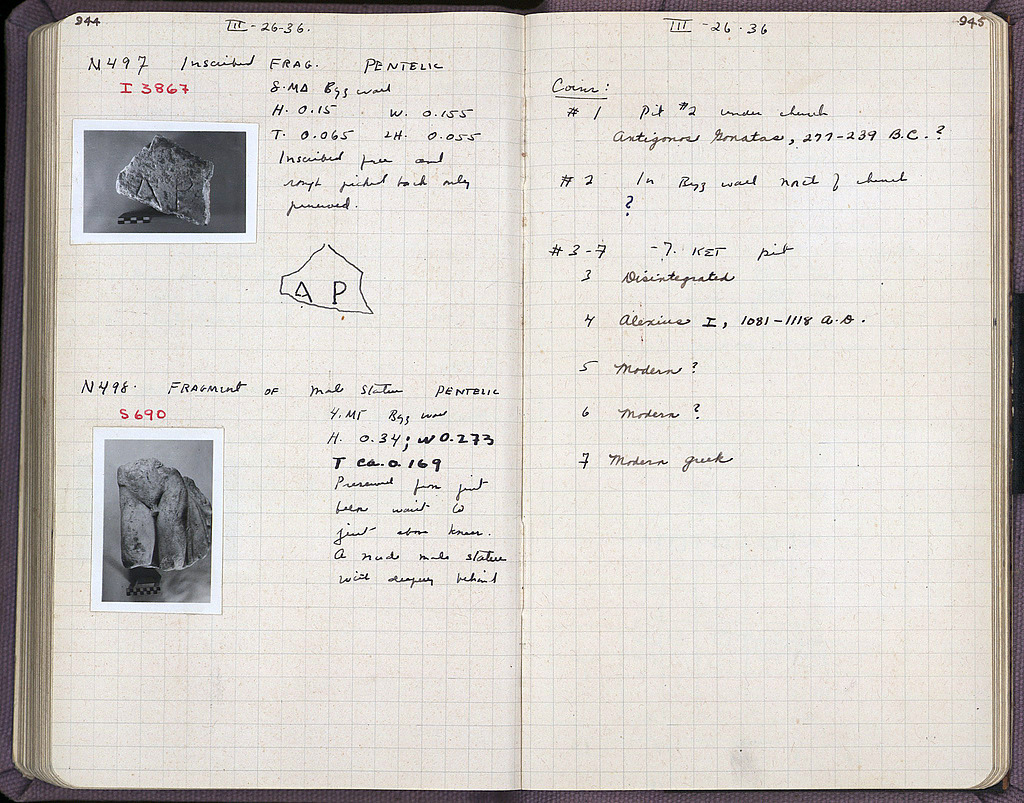 944
III - 26-36.
N497 Inscribed FRAG. PENTELIC
I 3867
8·ΜΔ Byz wall
H. 0.15 W. 0.155
T. 0.065 LH. 0.055
Inscribed face and
rough picked back only
preserved.
Α Ρ
N498. FRAGMENT OF male statue PENTELIC
S 690
Byz wall
H. 0.34; W 0.273
T ca. 0.169
Preserved from just
below waist to
just above knees.
A nude male statue
with drapery behind
945
III - 26 - 36
Coins:
# 1 Pit #2 under church
Antigonos Gonatas, 277-239 B.C. ?
# 2 In Byz wall north of church
?
# 3-7 -7. ΚΣΤ pit
3 Disintegrated
4 Alexius I, 1081-1118 A.D.
5 Modern ?
6 Modern ?
7 Modern greek